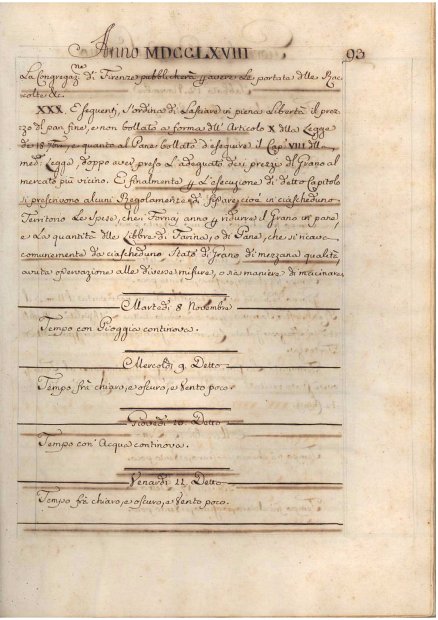 Anno MDCCLXVIII 93
La Congregaz.ne di Firenze pubblicherà p avere le portate dlle Rac=
colte &c.
XXX. E seguenti, S'ordina di lasciare in piena Libertà il prez=
zo dl pan fine, e non bollato a forma dll' Articolo X dlla Legge
de 18 7bre, e quanto al Pane bollato d'eseguire il Cap. VIII dlla
med. Legge, doppo aver preso L'adequato dei prezzi di Grano al
mercato più vicino. E finalmente p L'esecuzione di detto Capitolo
si prescrivono alcuni Regolamenti, e di separar cioè in ciascheduno
Territorio le Spese, che i Fornai anno p ridurre il Grano in pane,
e La quantità dlle Libbre di Farina, o di Pane, che si ricava
comunemente da ciascheduno Staio di Grano di mezzana qualità
avuta osservazione alle diverse misure, o sia maniere di macinare.
Martedì 8 Novembre
Tempo con Pioggia continova.
Mercoldì 9. Detto
Tempo frà chiaro, e oscuro, e Vento poco.
Giovedì 10. Detto
Tempo con Acqua continova.
Venardì 11. Detto
Tempo frà chiaro, e oscuro, e Vento poco.